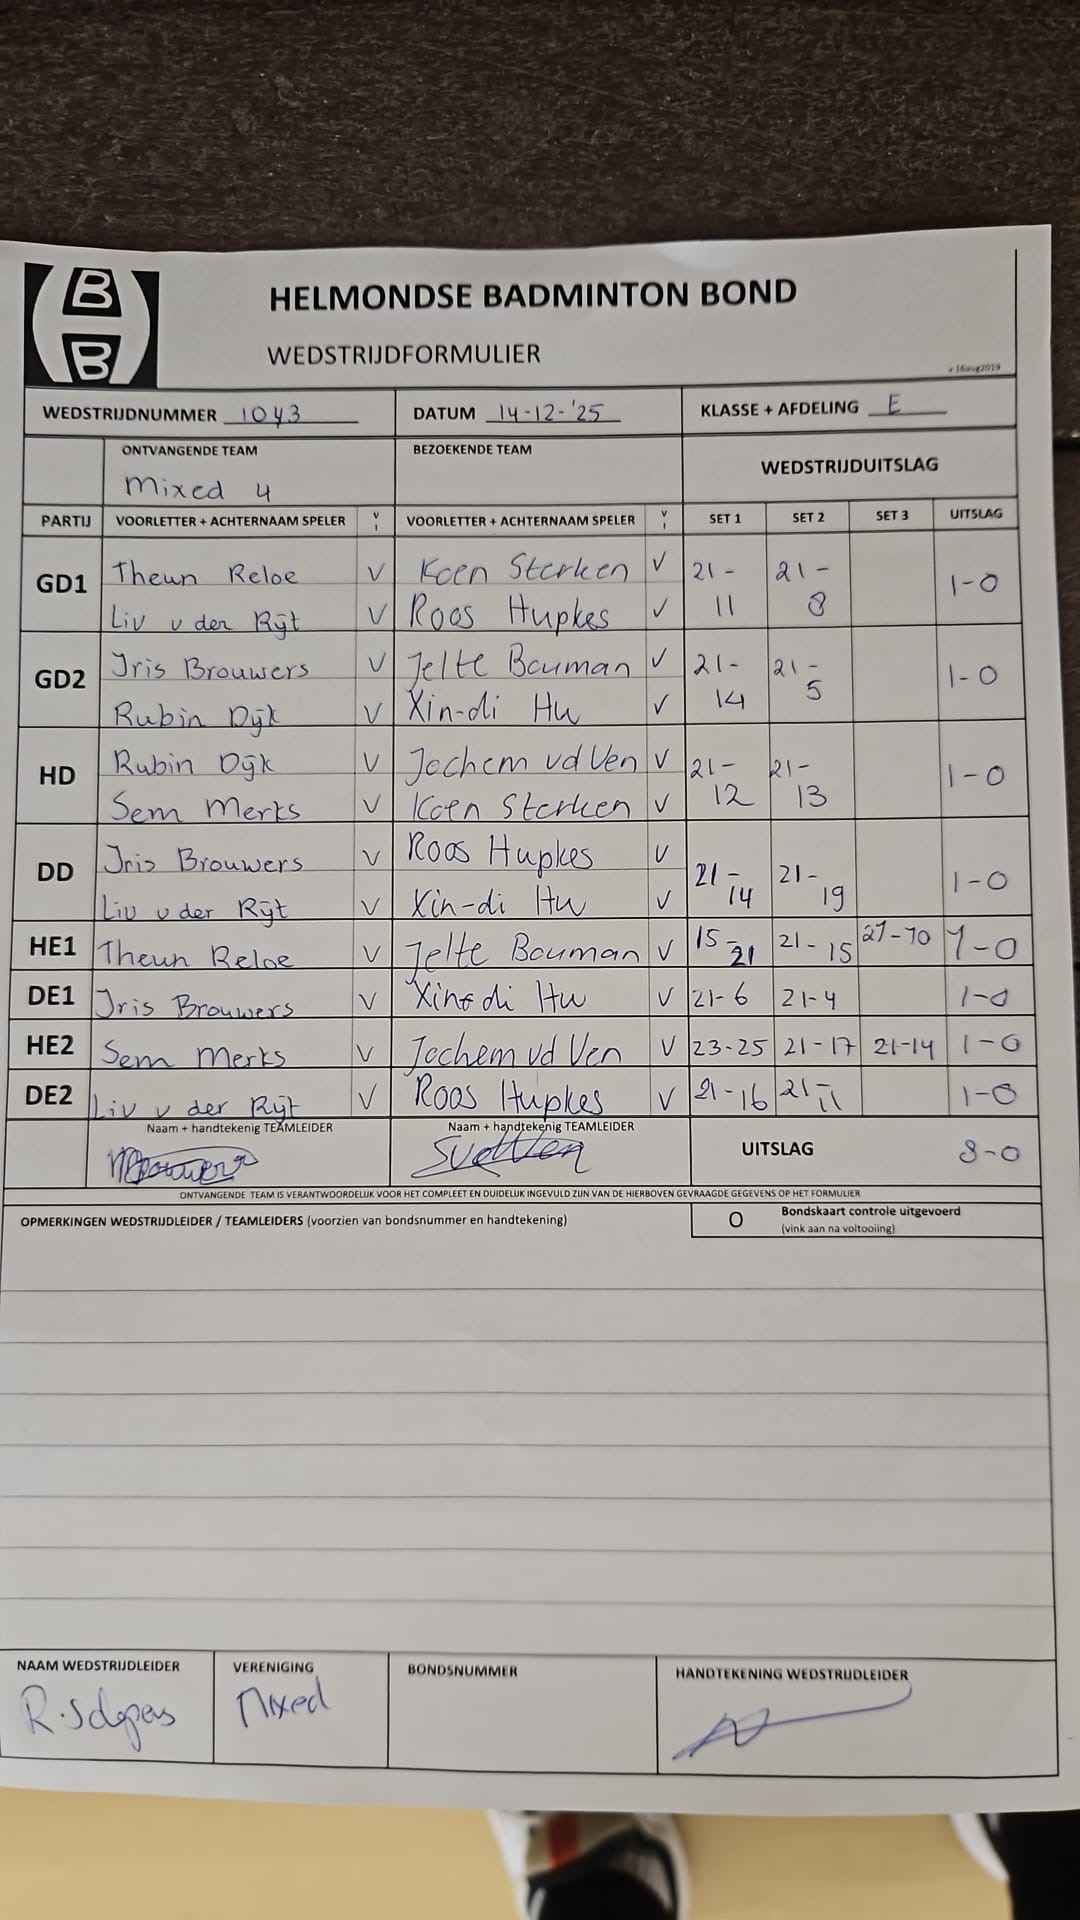 B
B
HELMONDSE BADMINTON BOND
WEDSTRIJDFORMULIER
v 16aug2019
WEDSTRIJDNUMMER 1043 DATUM 14-12-'25 KLASSE + AFDELING E
ONTVANGENDE TEAM BEZOEKENDE TEAM WEDSTRIJDUITSLAG
Mixed 4
PARTIJ VOORLETTER + ACHTERNAAM SPELER V I VOORLETTER + ACHTERNAAM SPELER V I SET 1 SET 2 SET 3 UITSLAG
GD1 Theun Reloe V Koen Sterken V 21- 21- 1-0
Liv v der Rijt V Roos Hupkes V 11 8
GD2 Iris Brouwers V Jelte Bouman V 21- 21- 1-0
Rubin Dijk V Xin-di Hu V 14 5
HD Rubin Dijk V Jochem vd Ven V 21- 21- 1-0
Sem Merks V Koen Sterken V 12 13
DD Iris Brouwers V Roos Hupkes V 21- 21- 1-0
Liv v der Rijt V Xin-di Hu V 14 19
HE1 Theun Reloe V Jelte Bouman V 15-21 21-15 21-10 1-0
DE1 Iris Brouwers V Xin-di Hu V 21-6 21-4 1-0
HE2 Sem Merks V Jochem vd Ven V 23-25 21-17 21-14 1-0
DE2 Liv v der Rijt V Roos Hupkes V 21-16 21-11 1-0
Naam + handtekenig TEAMLEIDER Naam + handtekenig TEAMLEIDER UITSLAG 8-0
ONTVANGENDE TEAM IS VERANTWOORDELIJK VOOR HET COMPLEET EN DUIDELIJK INGEVULD ZIJN VAN DE HIERBOVEN GEVRAAGDE GEGEVENS OP HET FORMULIER
OPMERKINGEN WEDSTRIJDLEIDER / TEAMLEIDERS (voorzien van bondsnummer en handtekening) O Bondskaart controle uitgevoerd
(vink aan na voltooiing)
NAAM WEDSTRIJDLEIDER VERENIGING BONDSNUMMER HANDTEKENING WEDSTRIJDLEIDER
Mixed